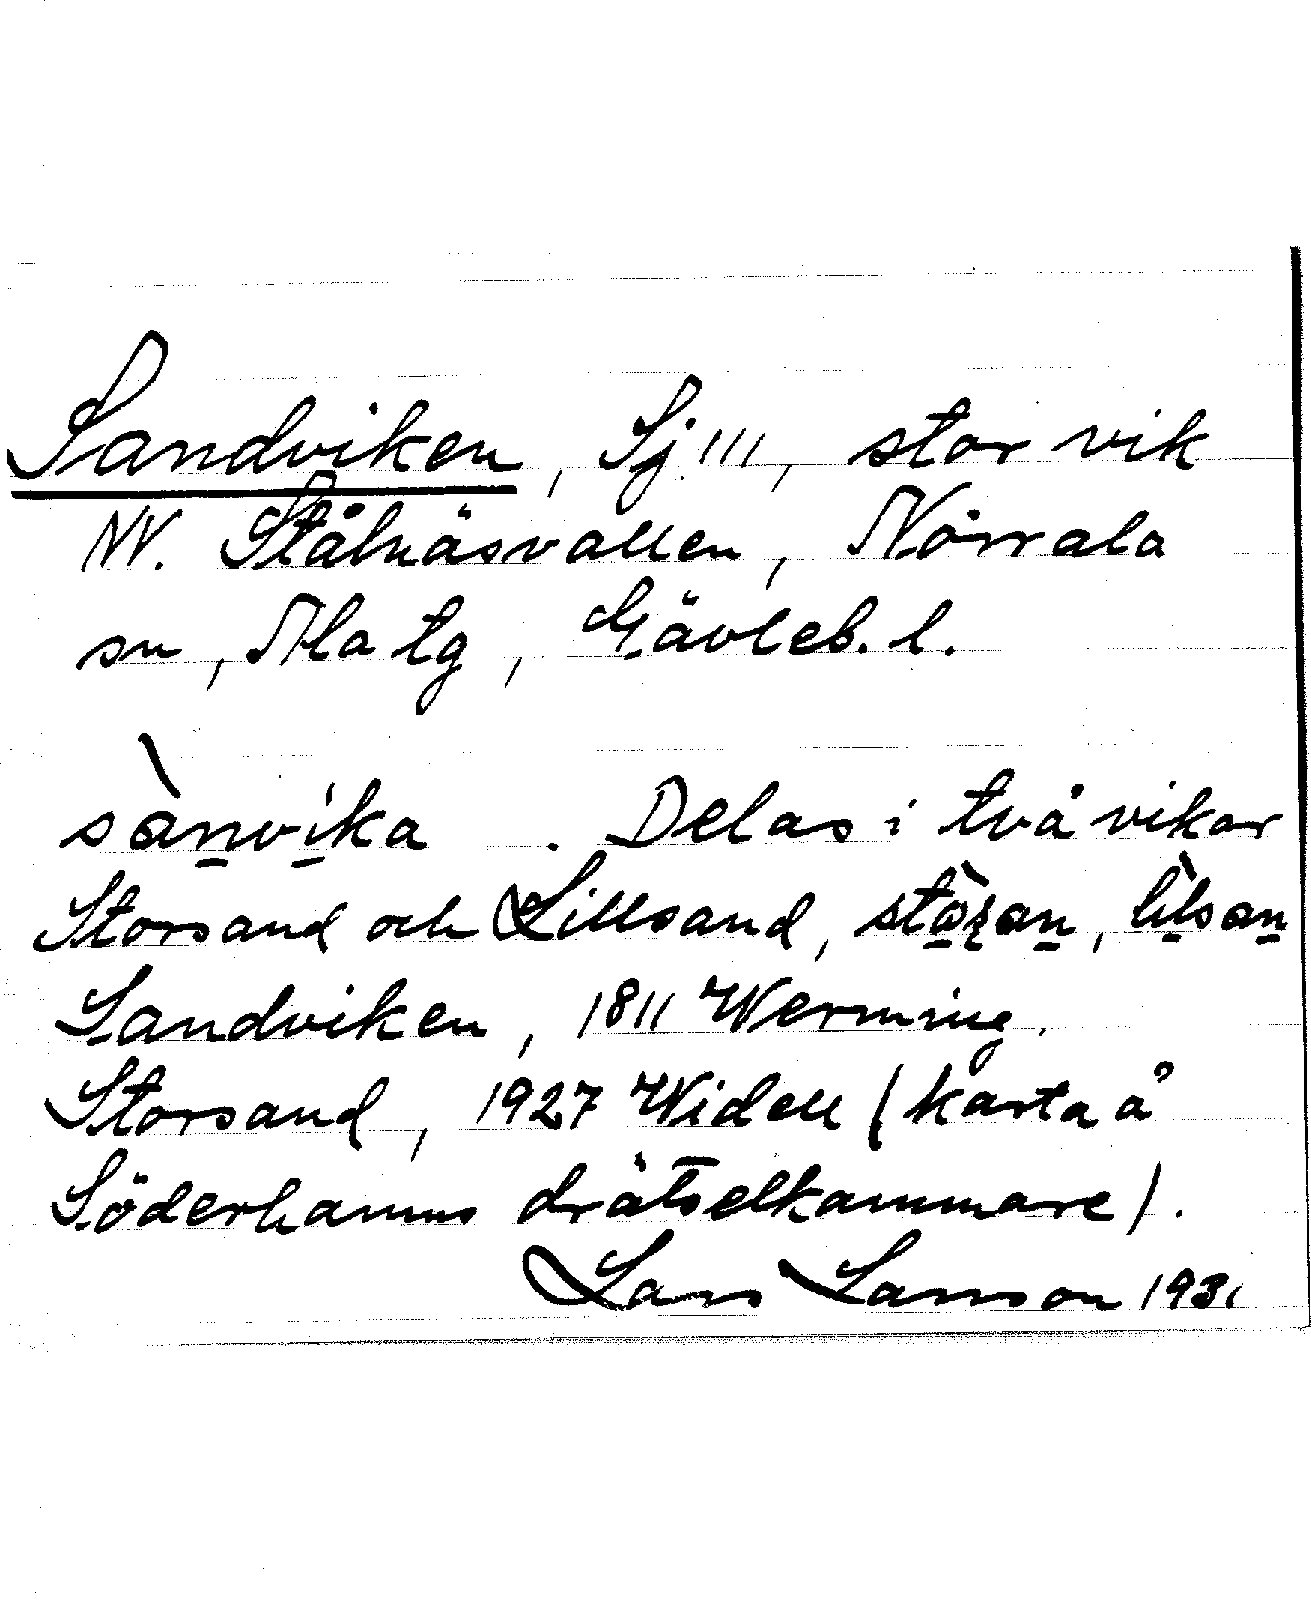 Sandviken, Sj 111, stor vik
NV. Stålnäsvallen, Norrala
sn, Ala tg, Gävleb. l.
sànvika. Delas i två vikar
Storsand och Lillsand, stòʂan, lìlsan
Sandviken, 1811 Werming.
Storsand, 1927 Widell (karta å
Söderhamns drätselkammare).
Lars Larsson 1931